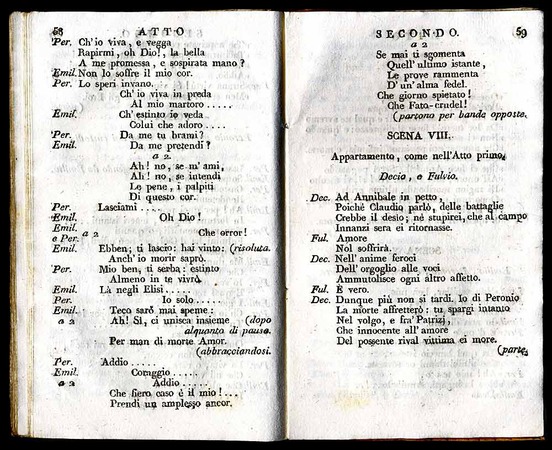 58 ATTO
Per. Ch'io viva, e vegga
Rapirmi, oh Dio!, la bella
A me promessa, e sospirata mano?
Emil. Non lo soffre il mio cor.
Per. Lo speri invano.
Ch'io viva in preda
Al mio martoro.....
Emil. Ch'estinto io veda
Colui che adoro....
Per. Da me tu brami?
Emil. Da me pretendi?
a 2
Ah! no, se m'ami,
Ah! no, se intendi
Le pene, i palpiti
Di questo cor.
Per. Lasciami....
Emil. Oh Dio!
Emil. e Per. a 2 Che orror!
Emil. Ebben; ti lascio: hai vinto: (risoluta.
Anch'io morir saprò.
Per. Mio ben, ti serba: estinto
Almeno in te vivrò.
Emil. Là negli Elisi....
Per. Io solo.....
Emil. Teco sarò mai speme:
a 2 Ah! Sì, ci unisca insieme (dopo
alquanto di pausa.
Per man di morte Amor.
(abbracciandosi.
Per. Addio....
Emil. Coraggio....
a 2 Addio....
Che fiero caso è il mio!...
Prendi un amplesso ancor.
SECONDO. 59
a 2
Se mai ti sgomenta
Quell'ultimo istante,
Le prove rammenta
D'un'alma fedel.
Che giorno spietato!
Che Fato crudel!
(partono per bande opposte.
SCENA VIII.
Appartamento, come nell'Atto primo.
Decio, e Fulvio.
Dec. Ad Annibale in petto,
Poichè Claudio parlò, delle battaglie
Crebbe il desio; nè stupirei, che al campo
Innanzi sera ei ritornasse.
Ful. Amore
Nol soffrirà.
Dec. Nell'anime feroci
Dell'orgoglio alle voci
Ammutolisce ogni altro affetto.
Ful. È vero.
Dec. Dunque più non si tardi. Io di Peronio
La morte affretterò: tu spargi intanto
Nel volgo, e fra' Patrizj,
Che innocente all'amore
Del possente rival vittima ei more.
(parte.